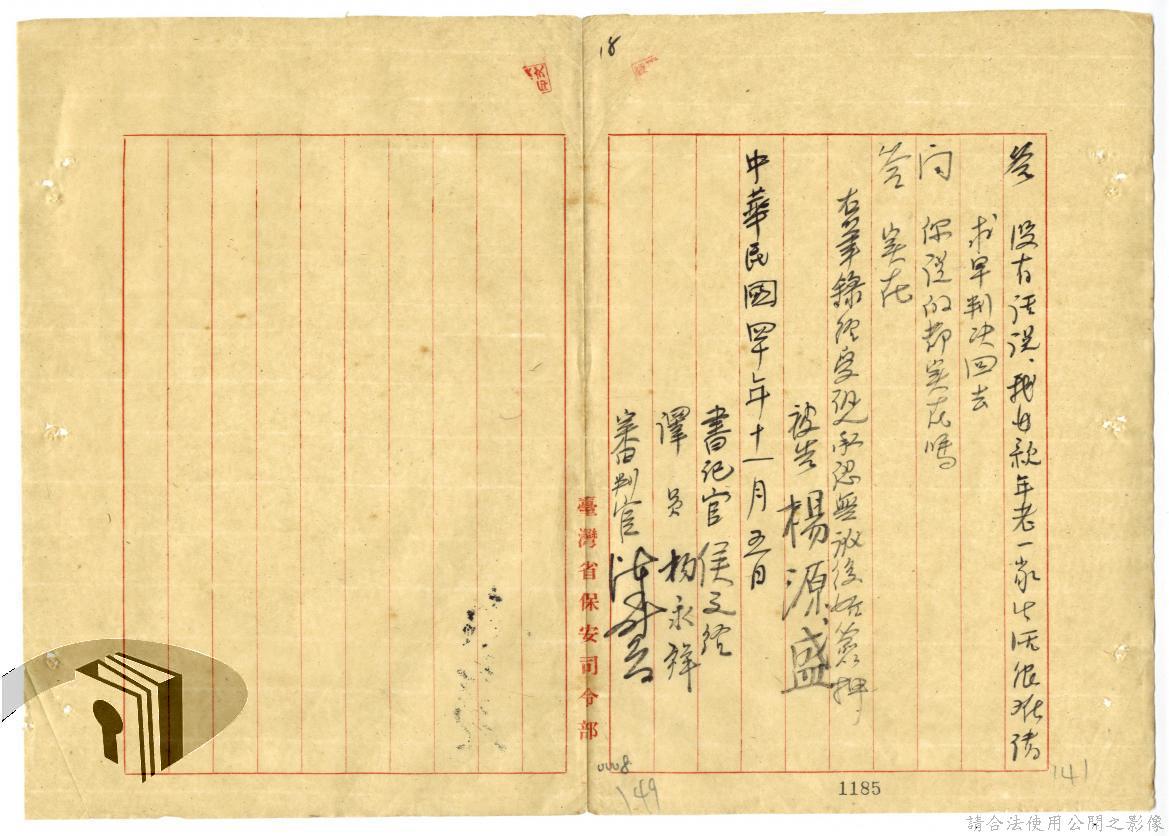 18
答 沒有話説、我母親年老一家生活很难請
求早判决回去
问 你説的都実在嗎
答 実在
右筆錄經交閱承認無訛後始簽押
被告 楊源盛
中華民國四十年十一月五日
書記官 侯文經
譯員 杨永祥
審判官
臺灣省保安司令部
0008
149
1185
141
請合法使用公開之影像